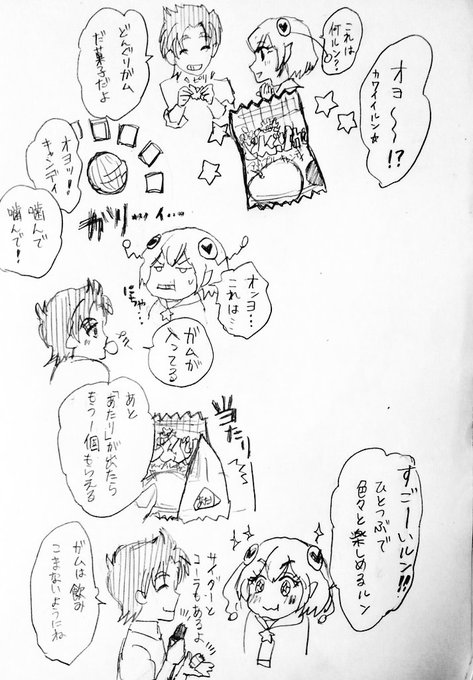 オヨ〜〜!?
カワイイルン☆
これは
何ルン??
どんぐりガム
だ菓子だよ
オヨッ!
キャンディ
噛んで
噛んで!
ガリッ
オンヨ…
これは…
にちゃ…
ガムが
入ってる
あと
「あたり」が出たら
もう一個もらえる
当たり
すごーいルン!!
ひとつぶで
色々と楽しめるルン
サイダーと
コーラもあるよ
ガムは飲み
こまないようにね